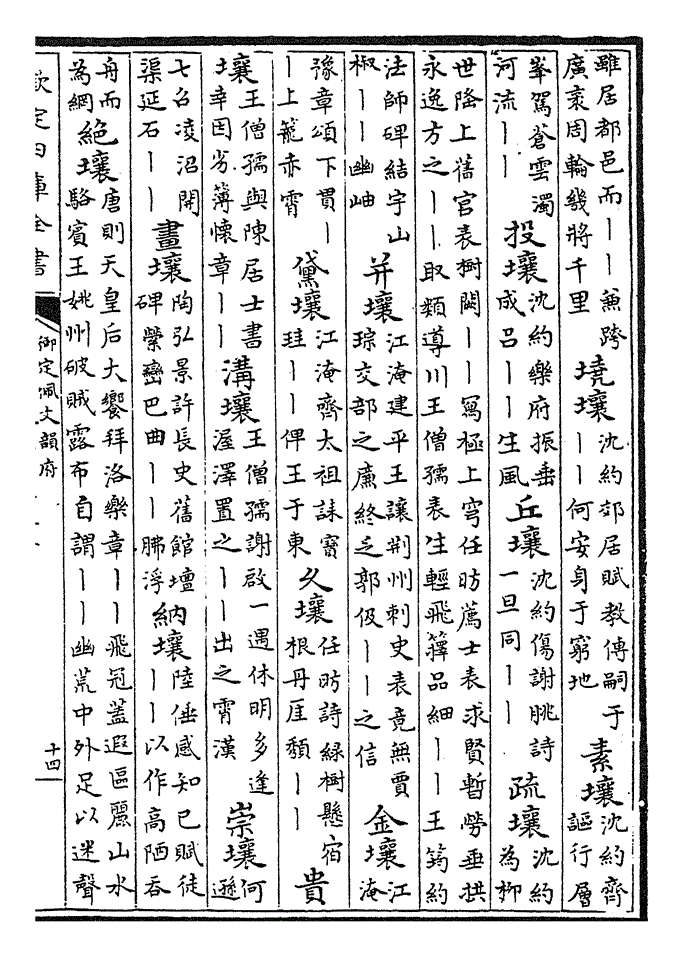 雖居都邑而丨丨兼跨廣袤周輪幾將千里 墝壤 沈約郊居賦教傳嗣于丨丨何安身于窮地 素壤 沈約齊謳行層
峯駕蒼雲濁河流丨丨 投壤 沈約樂府振垂成呂丨丨生風 丘壤 沈約傷謝朓詩一旦同丨丨 疏壤 沈約為柳
世隆上舊宮表樹闕丨丨寫極上穹任昉薦士表求賢暫勞垂拱永逸方之丨丨取類導川王僧孺表生輕飛籜品細丨丨王筠約
法師碑結宇山椒丨丨幽岫 并壤 江淹建平王讓荆州刺史表竟無賈琮交部之廉終乏郭伋丨丨之信 金壤 江淹
豫章頌下貫丨丨上籠赤霄 黛壤 江淹齊太祖誄寶珪丨丨俾王于東 久壤 任昉詩綠樹懸宿根丹厓頽丨丨 貴
壤 王僧孺與陳居士書幸因劣薄懷章丨丨 溝壤 王僧孺謝啟一遇休明多逢渥澤置之丨丨出之霄漢 崇壤 何遜
七召凌沼開渠延石丨丨 畫壤 陶弘景許長史舊館壇碑縈巒巴曲丨丨胏浮 納壤 陸倕感知己賦徒丨丨以作高陋吞
舟而為網 絕壤 唐則天皇后大饗拜洛樂章丨丨飛冠蓋遐區麗山水駱賓王姚州破賊露布自謂丨丨幽荒中外足以迷聲
欽定四庫全書
御定佩文韻府
十四